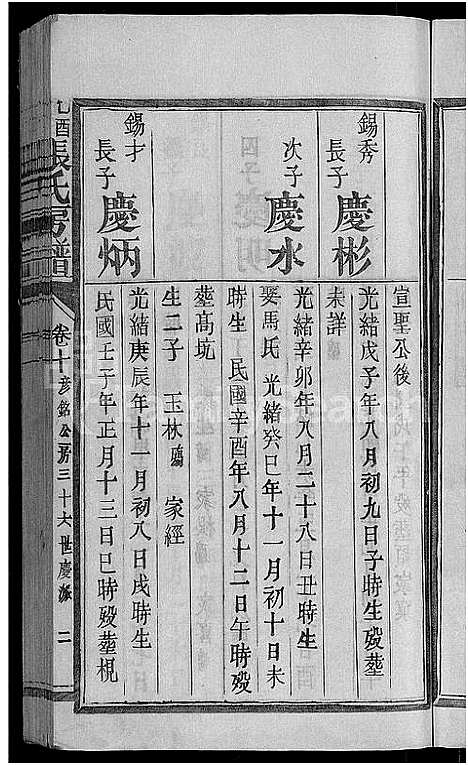 宣聖公後
錫秀
長子
慶彬
光緒戊子年八月初九日子時生歿塟
未詳
次子
慶水
光緒辛卯年八月二十八日丑時生
娶馬氏 光緒癸巳年十一月初十日未
時生 民國辛酉年八月十二日午時歿
塟高坑
生二子 玉林殤 家經
錫才
長子
慶炳
光緒庚辰年十一月初八日戌時生
民國壬子年正月十三日巳時歿塟梘
乙酉張氏房譜
卷十
彦銘公房三十六世慶派
二